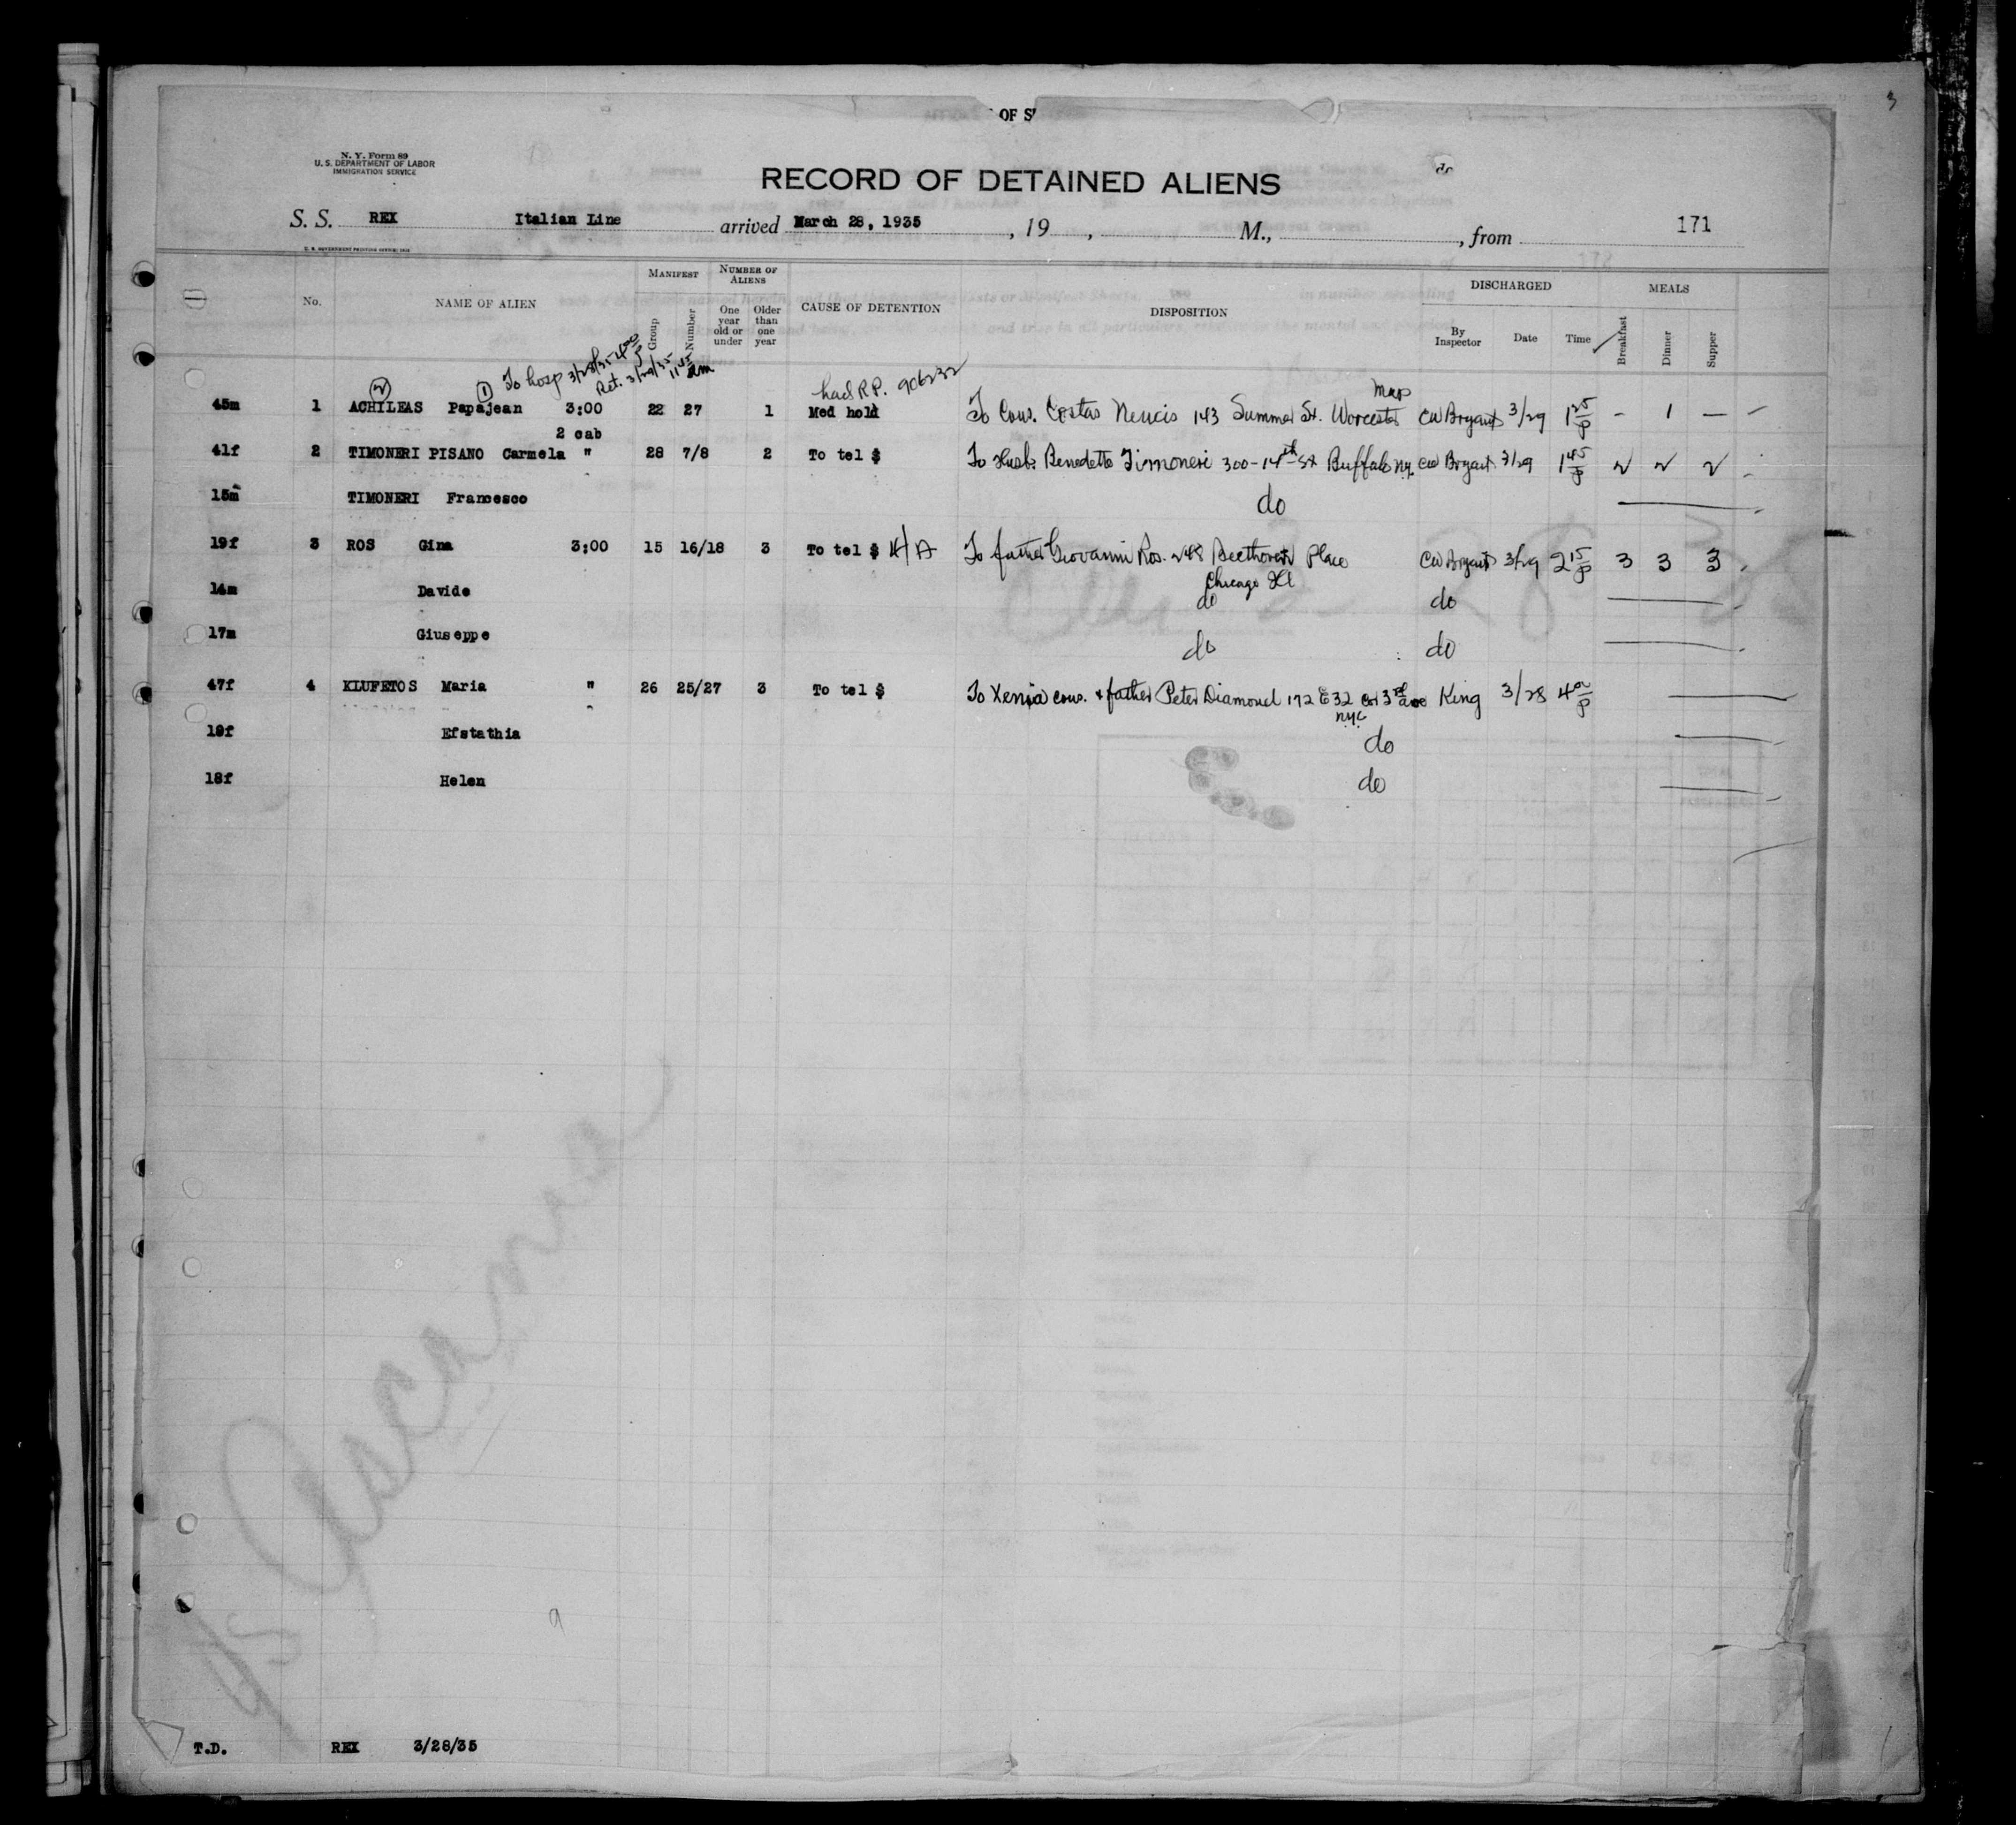 OF S
3
N. Y. Form 89
U. S. DEPARTMENT OF LABOR
IMMIGRATION SERVICE
RECORD OF DETAINED ALIENS
do
S. S. REX Italian Line arrived March 28, 1935 , 19 , M., , from 171
No. NAME OF ALIEN MANIFEST Group Number NUMBER OF ALIENS One year old or under Older than one year CAUSE OF DETENTION DISPOSITION DISCHARGED By Inspector Date Time MEALS Breakfast Dinner Supper
To hosp 3/28/35 4 00 P
Ret. 3/29/35 11 45 am
2 1 had R.P. 906232 Mass
45m 1 ACHILEAS Papajean 3:00 22 27 1 Med hold To Cous. Costas 143 Summer St. Worcester CW Bryant 3/29 1 25 P - 1 —
2 cab
41f 2 TIMONERI PISANO Carmela " 28 7/8 2 To tel $ To Husb. Benedetto Timoneri 300-14th St Buffalo N.Y. CW Bryant 3/29 1 45 P 2 2 2
15m TIMONERI Francesco do
19f 3 ROS Gina 3:00 15 16/18 3 To tel $ To father Giovanni Ros. 248 Beethoven Place CW Bryant 3/29 2 15 P 3 3 3
Chicago Ill
14m Davide do do
17m Giuseppe do do
47f 4 KLUFETOS Maria " 26 25/27 3 To tel $ To Xenia cous. + father Peter Diamond 172 E 32 cor 3rd ave King 3/28 4 00 P
NYC
19f Efstathia do
18f Helen do
Ascania
9
T.D. REX 3/28/35